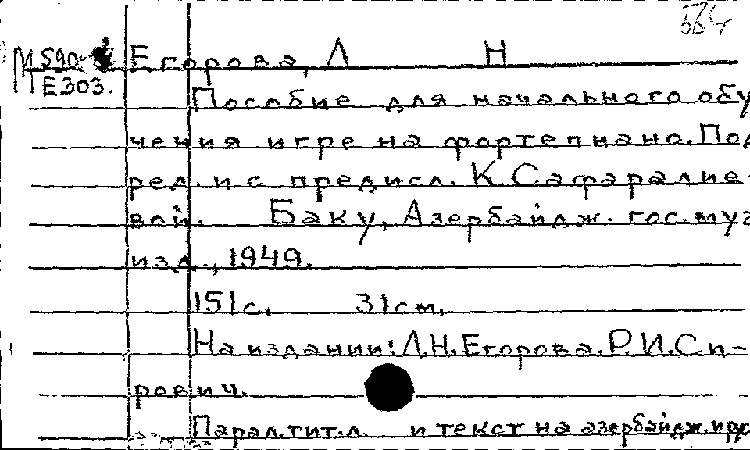 М590
Егорова, Л Н
Е303.
Пособие для начального обу
чения игре на фортепиано. Под
ред. и с предисл. К Сафаралие-
вой. Баку, Азербайдж. гос. муз
изд., 1949.
151 с. 31 см.
На издании: Л.Н. Егорова. Р.И. Си-
рович.
Парал. тит. л и текст на азербайдж. и рус